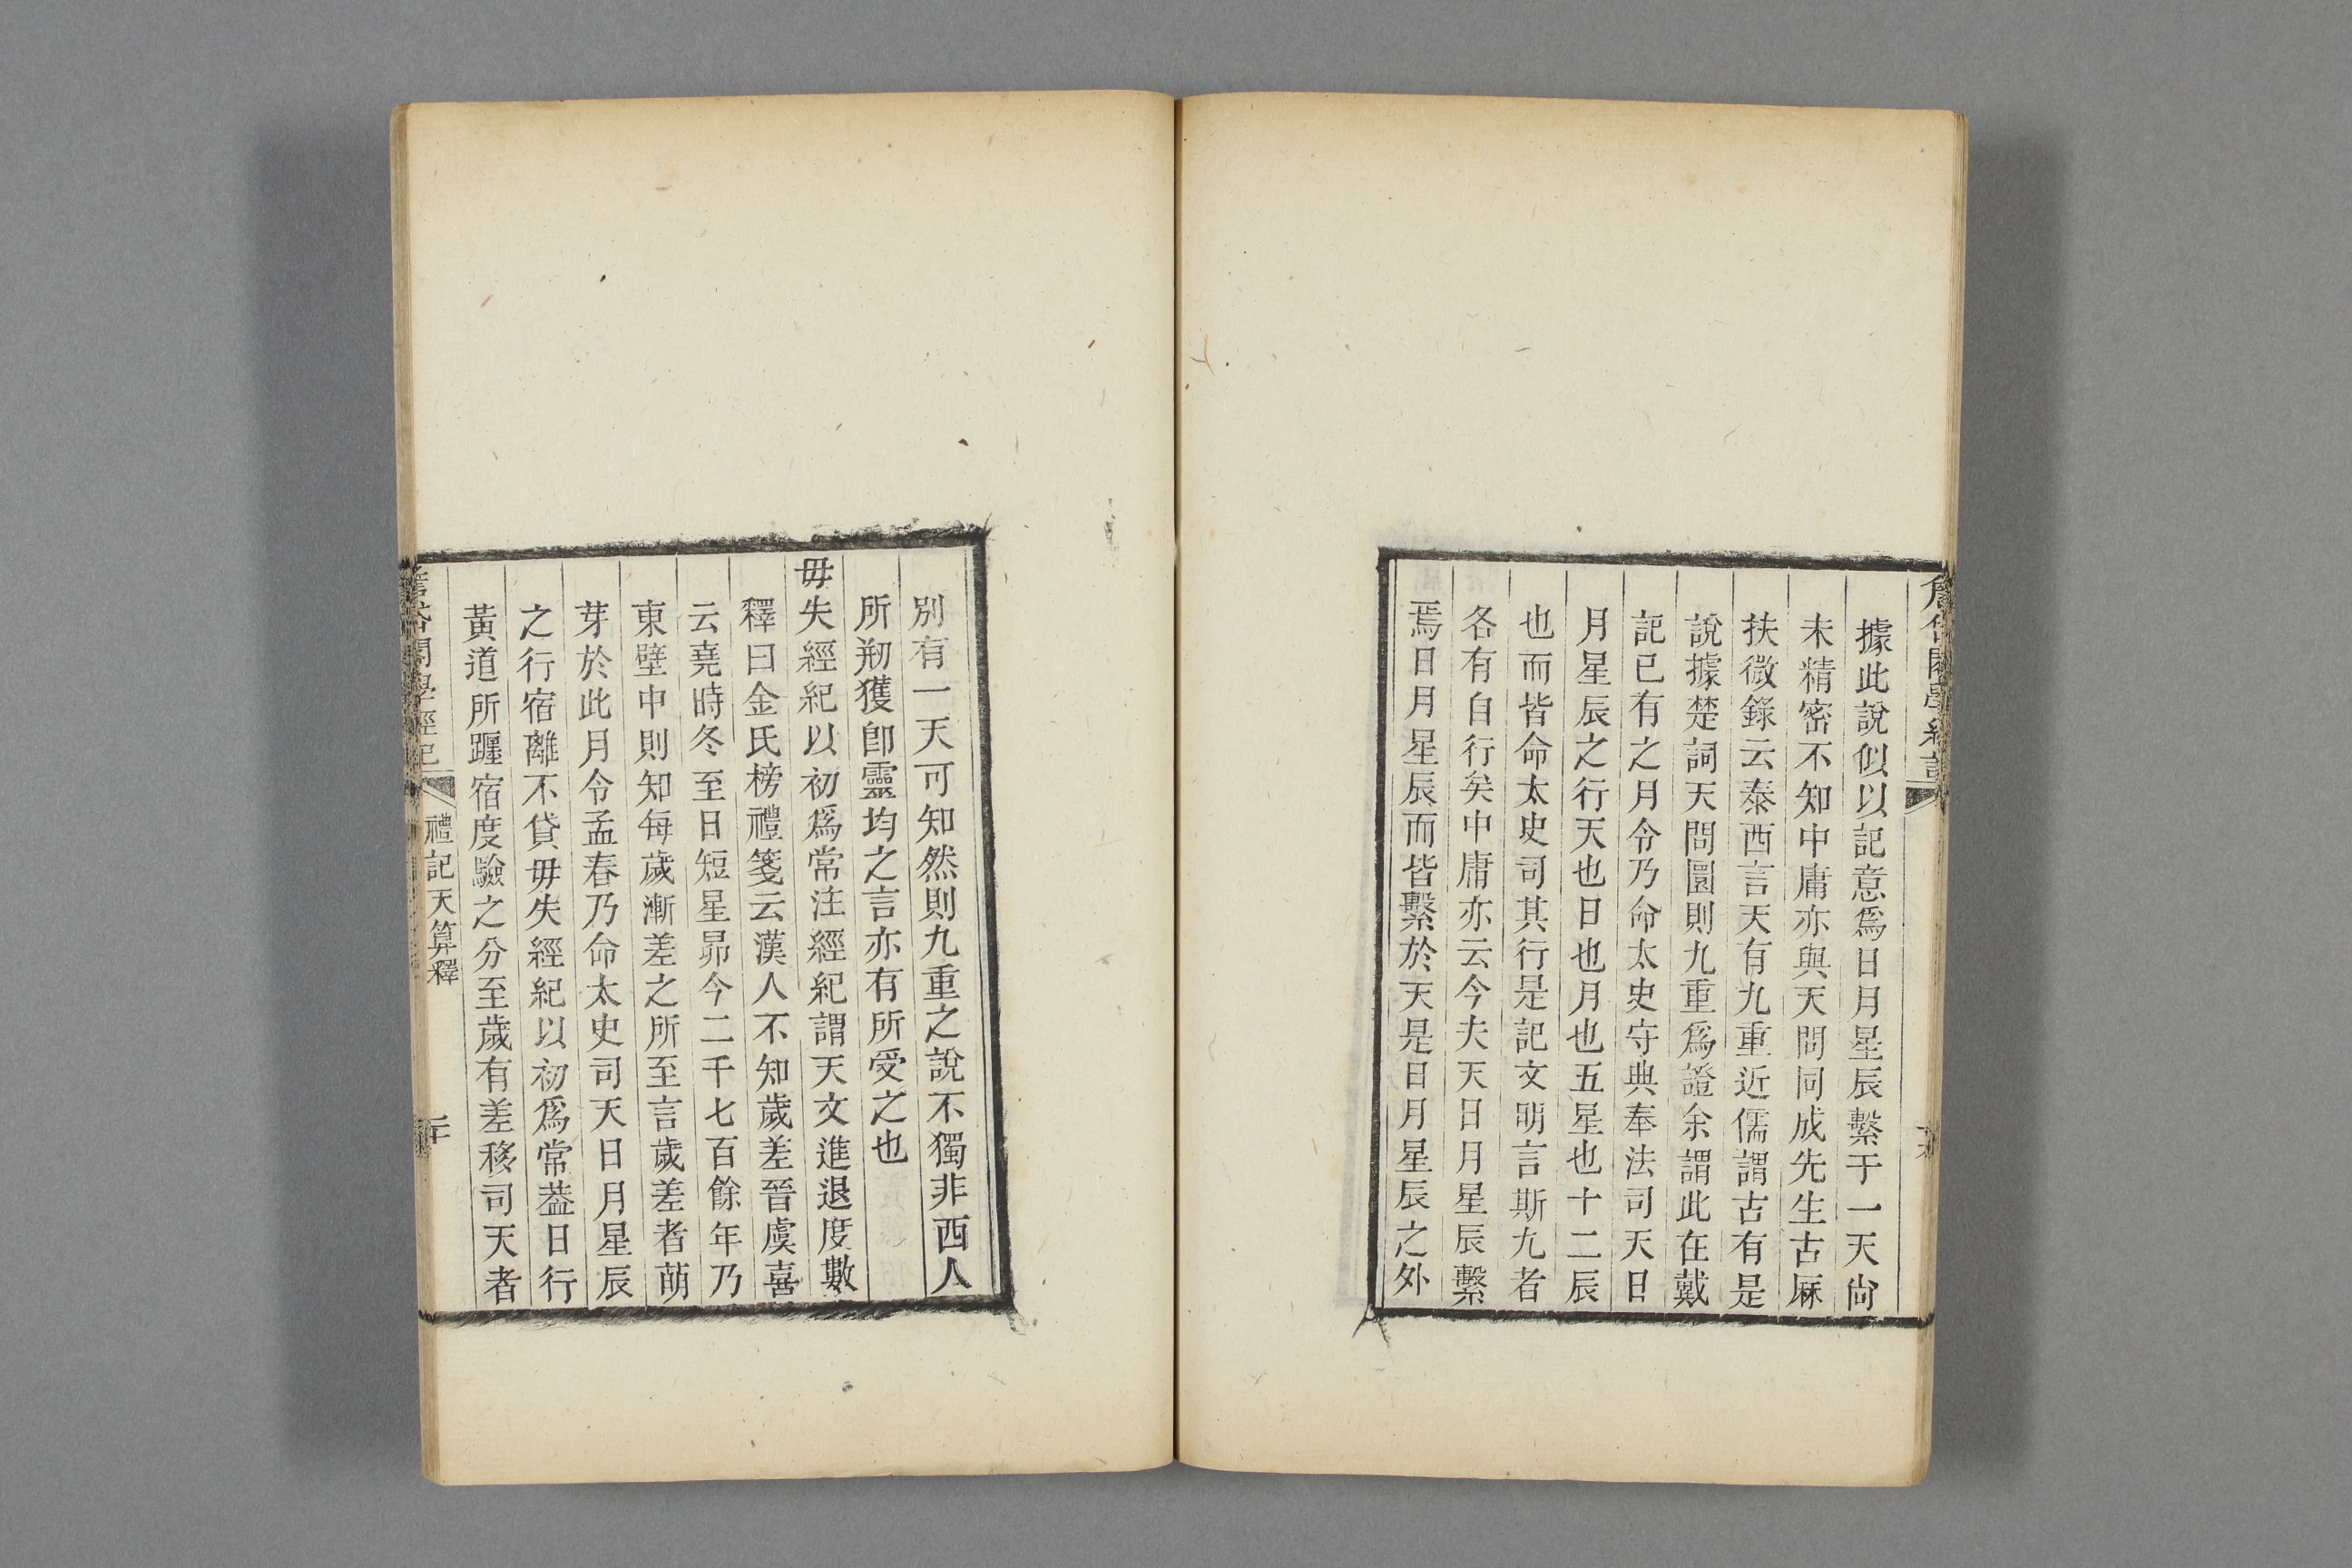 據此說似以記意爲日月星辰繫于一天尙
未精密不知中庸亦與天問同成先生古厤
扶微錄云泰西言天有九重近儒謂古有是
說據楚詞天問圜則九重爲證余謂此在戴
記已有之月令乃命太史守典奉法司天日
月星辰之行天也日也月也五星也十二辰
也而皆命太史司其行是記文明言斯九者
各有自行矣中庸亦云今夫天日月星辰繫
焉日月星辰而皆繫於天是日月星辰之外
別有一天可知然則九重之說不獨非西人
所刱獲卽靈均之言亦有所受之也
毋失經紀以初爲常注經紀謂天文進退度數
釋曰金氏榜禮箋云漢人不知歲差晉虞喜
云堯時冬至日短星昴今二千七百餘年乃
東壁中則知每歲漸差之所至言歲差者萌
芽於此月令孟春乃命太史司天日月星辰
之行宿離不貸毋失經紀以初爲常葢日行
黃道所躔宿度驗之分至歲有差移司天者
禮記天算釋